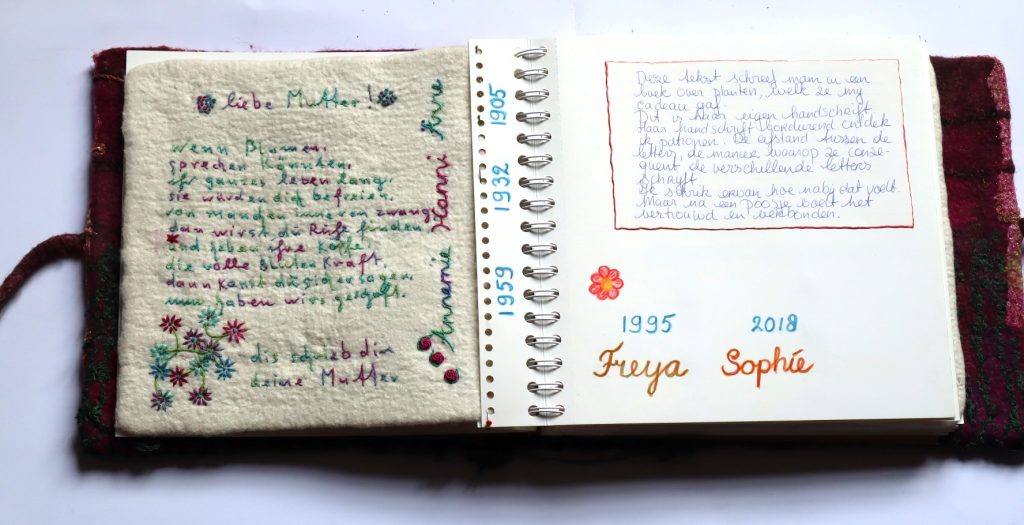 liebe Mutter!
wenn Blumen,
sprechen Könnten,
ifr ganzes leben lang.
sie würden dich befreien.
von manchen innerem zwang
dan wirst dü Rühe finden
und geben ifre
die volle Blüten Kraft,
dann Kanst dü sagen,
nun haben wirs
dis schrieb dir
deine Mutter
Annemie Hanni Anne
1959 1932 1905
Deze tekst schreef mam in een
boek over planten, welk ze mij
cadeau gaf.
Dit is haar eigen handschrift.
Haar handschrift voordurend ontdek
ik patronen. De afstand tussen de
letters, de manier waarop ze conze-
quent de verschillende letters
schrijft.
Ik schrik ervan hoe nabij dat voelt.
Maar na een poosje voelt het
vertrouwd en verbonden.
1995 2018
Freya Sophie